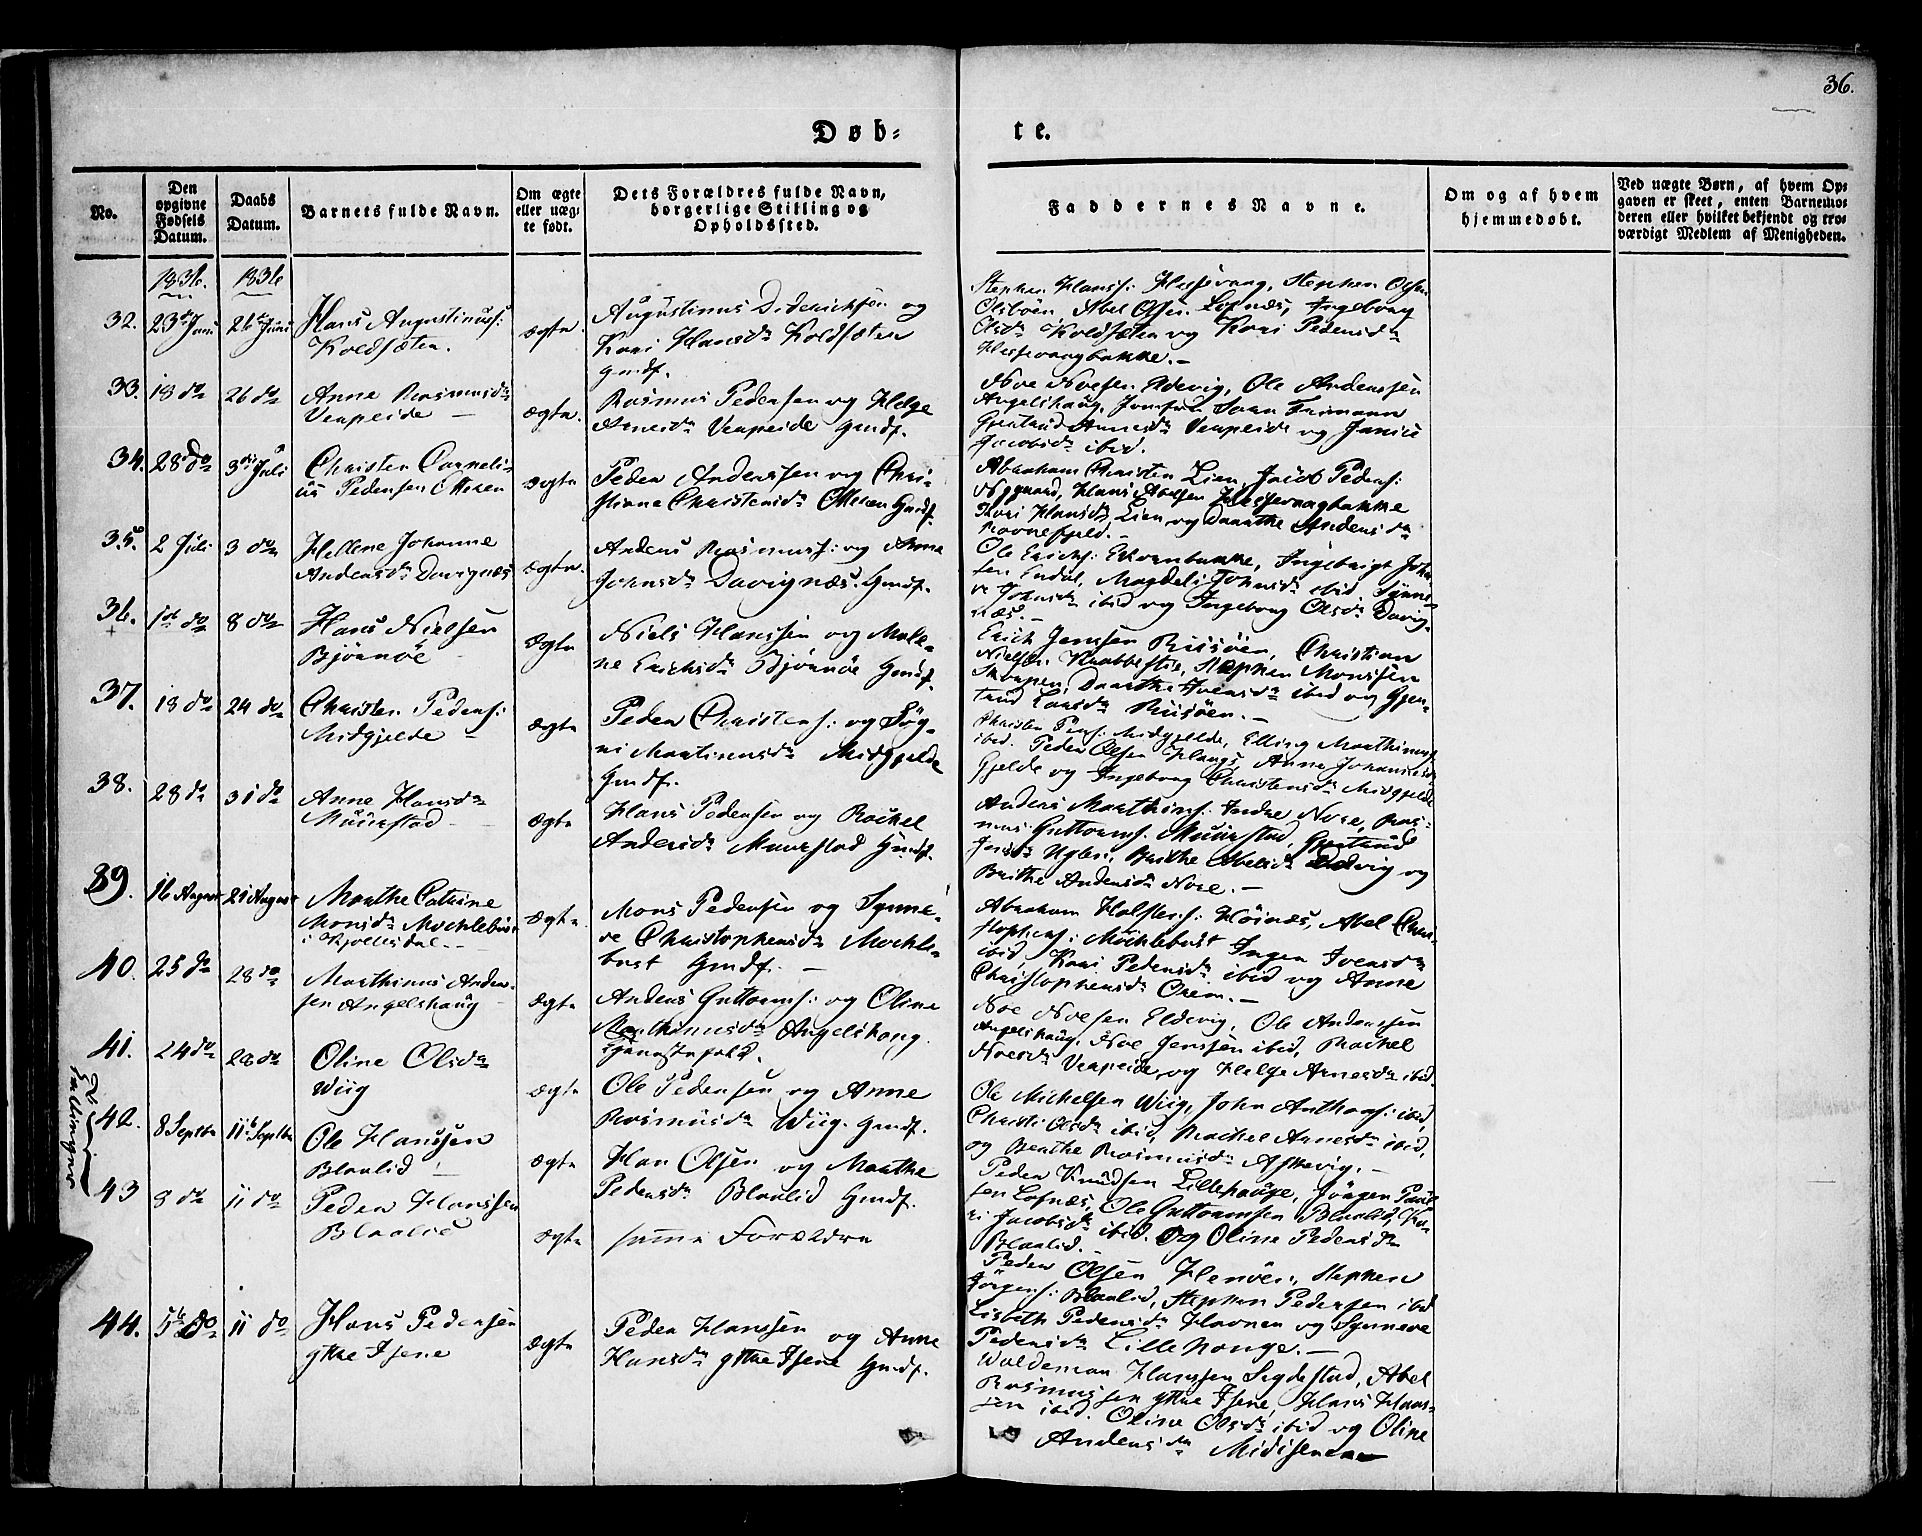 36.
Døb-
te.
No.
Den
opgivne
Fødsels
Datum.
Daabs
Datum.
Barnets fulde Navn.
Om ægte
eller uæg-
te født.
Dets Forældres fulde Navn,
borgerlige Stilling og
Opholdssted.
Faddernes Navne.
Om og af hvem
hjemmedøbt.
Ved uægte Børn, af hvem Op-
gaven er skeet, enten Barnemo-
deren eller hvilket bekjendt og tro-
værdigt Medlem af Menigheden.
1836.
1836
32.
23de Juni
26de Juni
Hans Augustinuss:
Koldsæten.
ægte
Augustinus Diderichsen og
Kari Hansdr Koldsæten
Gmdf.
Stephen Hanss: Hesjevaag, Stephen Olsen
Olsböen, Abel Olsen Lofnæs, Ingeborg
Olsdr Koldsæten og Kari Pedersdr
Hesjevaagbakke. –
33.
18 do
26 do
Anne Rasmusdr
Veapeide –
ægte.
Rasmus Pedersen og Helge
Arnesdr Veapeide Gmdf.
Noe Noesen Eldevig, Ole Anderssen
Angelshaug, Jomfru Sara Frimann
Gjertrud Arnesdr Veapeide og
Jacobsdr ibid.
34.
28 do
3die Juli
Christen Corneli-
us Pedersen Ottesen
ægte
Peder Anderssen og Chri-
stiane Christensdr Ottesen Gmdf.
Abraham Christen Lien, Jacob Peders:
Nygaard, Hans Abelsen Hesjevaagbakke
Kari Hansdr Lien og Daarthe Andersdr
Ravnefjeld. –
35.
2 Juli
3 do
Hellene Johanne
Andersdr Davignæs
ægte.
Anders Rasmuss: og Anne
Johnsdr Davignæs. Gmdf.
Ole Erichs: Ekornbakke, Ingebrigt John-
sen Endal, Magdeli Johnsdr ibid, Synne-
ve Johnsdr ibid og Ingeborg Olsdr Davig-
næs. –
36.
+
1ste do
8 do
Hans Nielsen
Bjørnöe
ægte
Niels Hanssen og Male-
ne Erichsdr Bjørnöe Gmdf.
Erich Jenssen Riisöen, Christian
Nielsen Krabbestie, Stephen Monssen
Skorpen, Daarthe Iversdr ibid og Gjer-
trud Larsdr Riisöen. –
37.
18 do
24 do
Christen Peders:
Midgjelde –
ægte
Peder Christens: og Sög-
ni Martinusdr Midgjelde
Gmdf.
Christen Peders: Midgjelde, Elling Marthinus:
ibid. Peder Olsen Haugs, Anne Johannesdr
Gjelde og Ingeborg Christensdr Midgjelde
38.
28 do
31 do
Anne Hansdr
Muurstad –
ægte
Hans Pedersen og Rachel
Andersdr Muurstad Gmdf.
Anders Marthins: Indre Nore, Ras-
mus Guttorms: Muurstad, Gjertrud
Jensdr Uglen, Berthe Noesdr Eldevig og
Berthe Andersdr Nore. –
39.
16 August
21 August
Marthe Catrine
Monsdr Mechlebust
i Kjellesdal. –
ægte
Mons Pedersen og Synne-
ve Christophersdr Mechle-
bust Gmdf. –
Abraham Holstens: Höinæs, Abel Chri-
stophers: Mechlebust Inger Iversdr
ibid, Kari Pedersdr ibid og Anne
Christophersdr Orem. –
40.
25 do
28 do
Marthinus Ander-
sen Angelshaug –
ægte
Anders Guttorms: og Oline
Marthinusdr Angelshaug.
Tjenestefolk.
Noe Noesen Eldevig, Ole Anderssen
Angelshaug, Noe Jenssen ibid, Rachel
Noesdr Veapeide, og Helge Arnesdr ibid.
41.
24 do
28 do
Oline Olsdr
Wiig
ægte
Ole Pedersen og Anne
Rasmusdr Wiig. Gmdf.
Ole Michelsen Wiig, John Anthons: ibid,
Christi Olsdr ibid, Rachel Arnesdr ibid,
og Berthe Rasmusdr Askevig. –
Tvillinger
42.
8 Septbr
11te Septbr
Ole Hanssen
Blaalid –
ægte
Han Olsen og Marthe
Pedersdr Blaalid Gmdf.
Peder Knudsen Lillehauge, Jörgen Paul-
sen Lofnæs, Ole Guttormsen Blaalid, Ka-
ri Jacobsdr ibid. Og Oline Pedersdr
Blaalid. –
43
8 do
11 do
Peder Hanssen
Blaalid
ægte
samme Forældre
Peder Olsen Henöen, Stephen
Jörgens: Blaalid, Stephen Pedersen ibid
Lisbeth Pedersdr Havnen og Synneve
Pedersdr Lillehauge. –
44.
5te do
11 do
Hans Pedersen
yttre Isene
ægte
Peder Hanssen og Anne
Hansdr yttre Isene Gmdf.
Woldemar Hanssen Segdestad, Abel
Rasmussen yttre Isene, Hans Hans-
sen ibid. Oline Olsdr ibid og Oline
Andersdr Midisene